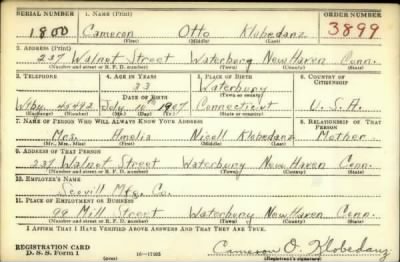 SERIAL NUMBER 1. NAME (Print) ORDER NUMBER
1800 Cameron Otto Klobedanz 3899
(First) (Middle) (Last)
2. ADDRESS (Print)
237 Walnut Street Waterbury New Haven Conn.
(Number and street or R. F. D. number) (Town) (County) (State)
3. TELEPHONE 4. AGE IN YEARS 5. PLACE OF BIRTH 6. COUNTRY OF CITIZENSHIP
33 Waterbury
DATE OF BIRTH (Town or county)
Wtby July 1907 Connecticut U.S.A.
(Exchange) (Number) (Mo.) (Day) (Yr.) (State or country)
7. NAME OF PERSON WHO WILL ALWAYS KNOW YOUR ADDRESS 8. RELATIONSHIP OF THAT PERSON
Mrs. Amelia Nicoll Klobedanz Mother
(Mr., Mrs., Miss) (First) (Middle) (Last)
9. ADDRESS OF THAT PERSON
237 Walnut Street Waterbury New Haven Conn.
(Number and street or R. F. D. number) (Town) (County) (State)
10. EMPLOYER'S NAME
Scovill Mfg. Co.
11. PLACE OF EMPLOYMENT OR BUSINESS
99 Mill Street Waterbury New Haven Conn.
(Number and street or R. F. D. number) (Town) (County) (State)
I AFFIRM THAT I HAVE VERIFIED ABOVE ANSWERS AND THAT THEY ARE TRUE.
REGISTRATION CARD
D. S. S. Form 1 (over) Cameron O. Klobedanz
(Registrant's signature)